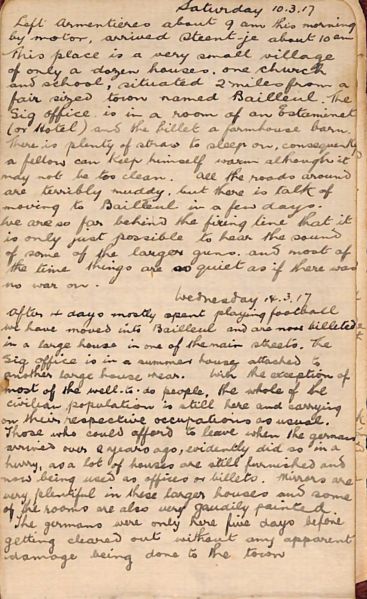 Saturday 10.3.17
Left Armentieres about 9 am this morning
by motor, arrived Steent-je about 10 am
This place is a very small village
of only a dozen houses, one church
and school, situated 2 miles from a
fair sized town named Bailleul. The
Sig Office is in a room of an Estaminet
(or Hotel) and the billet a farmhouse barn.
There is plenty of straw to sleep on, consequently
a fellow can keep himself warm although it
may not be too clean. All the roads around
are terribly muddy, but there is talk of
moving to Bailleul in a few days.
We are so far behind the firing line that it
is only just possible to hear the sound
of some of the larger guns, and most of
the time things are so quiet as if there was
no war on.
Wednesday 14.3.17
After 4 days mostly spent playing football
we have moved into Bailleul and are now billeted
in a large house in one of the main streets. The
Sig office is in a summer house, attached to
another large house near. With the exception of
most of the well-to-do people, the whole of the
civilian population is still here and carrying
on their respective occupations as usual.
Those who could afford to leave when the germans
arrived over 2 years ago, evidently did so in a
hurry, as a lot of houses are still furnished and
now being used as offices or billets. Mirrors are
very plentiful in these larger houses and some
of the rooms are also very gaudily painted.
The germans were only here five days before
getting cleared out without any apparent
damage being done to the town